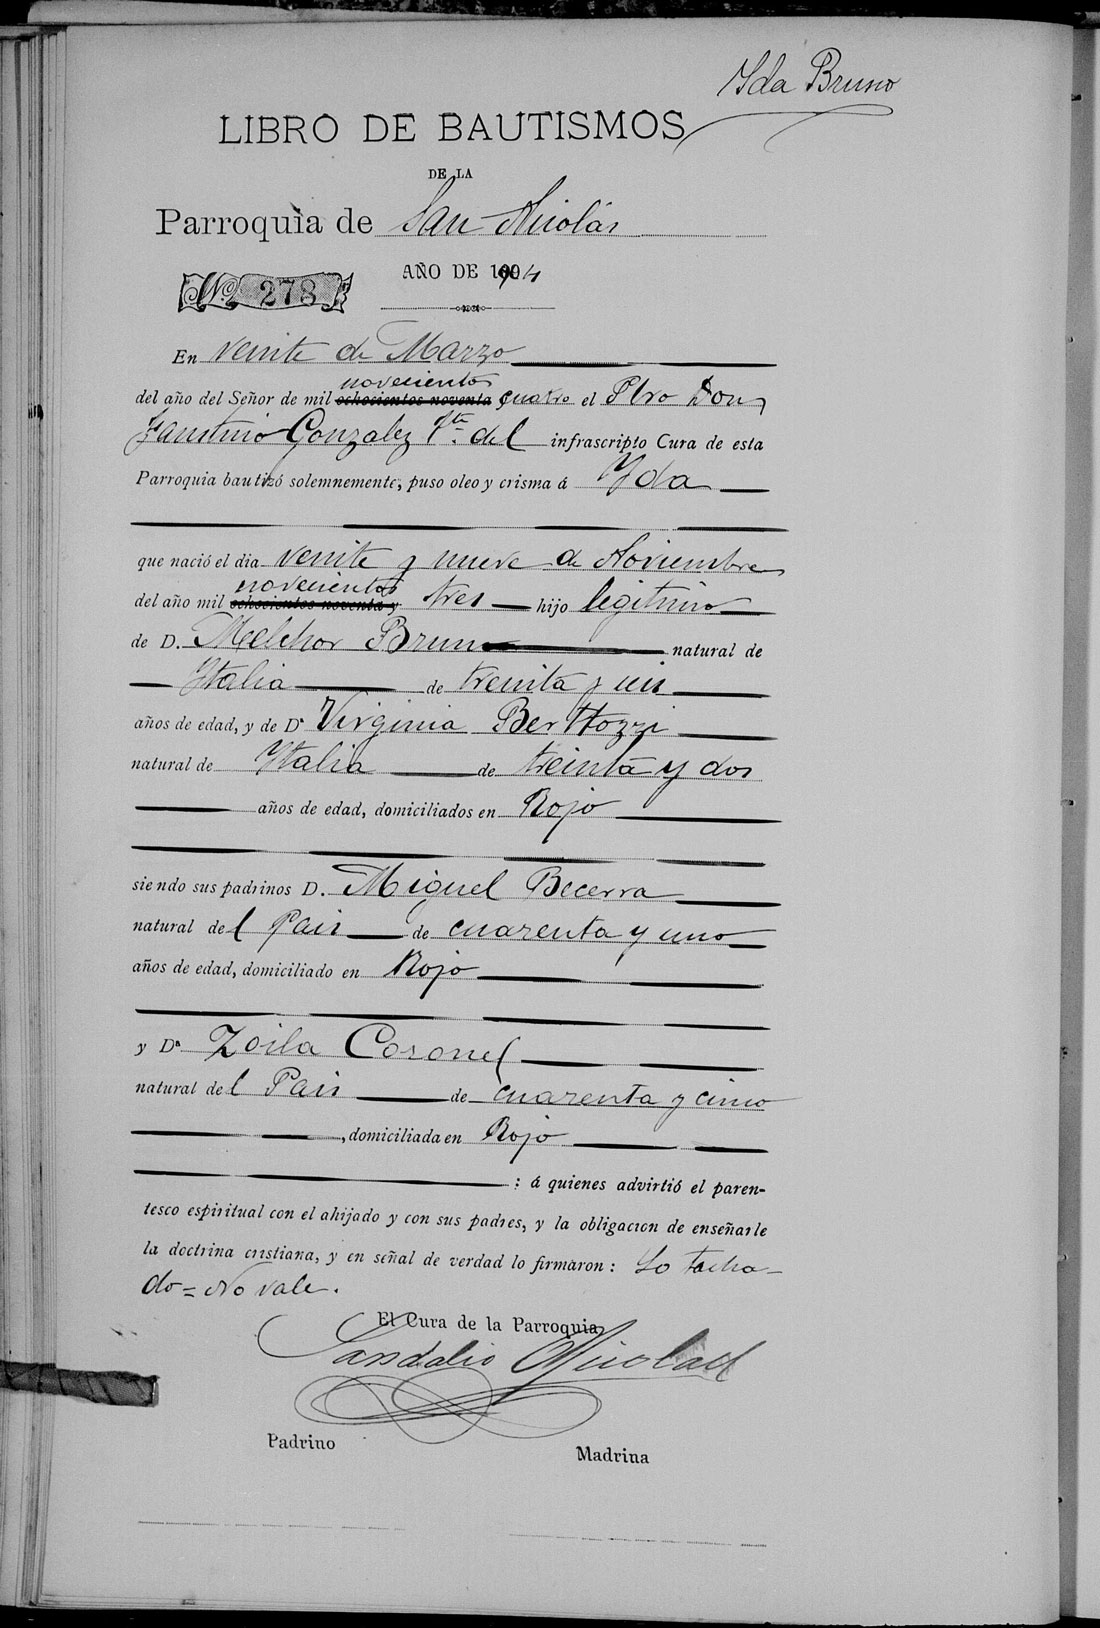 Yda Bruno
LIBRO DE BAUTISMOS
DE LA
Parroquia de San Nicolás
AÑO DE 1904
No. 278
En veinte de Marzo
novecientos
del año del Señor de mil ochocientos noventa cuatro el Pbro Don
Faustino Gonzalez Tte. del infrascripto Cura de esta
Parroquia bautizó solemnemente, puso oleo y crisma á Yda
que nació el dia veinte y nueve de Noviembre
novecientos
del año mil ochocientos noventa y tres hijo legitimo
de D. Melchor Bruno natural de
Ytalia de treinta y un
años de edad, y de Da Virginia Berttozzi
natural de Ytalia de treinta y dos
años de edad, domiciliados en Rojo
siendo sus padrinos D. Miguel Becerra
natural del Pais de cuarenta y uno
años de edad, domiciliado en Rojo
y Da Zoila Coronel
natural del Pais de cuarenta y cinco
, domiciliada en Rojo
: á quienes advirtió el paren-
tesco espiritual con el ahijado y con sus padres, y la obligacion de enseñarle
la doctrina cristiana, y en señal de verdad lo firmaron: Lo tacha-
do = No vale.
El Cura de la Parroquia
Sandalio
Padrino
Madrina